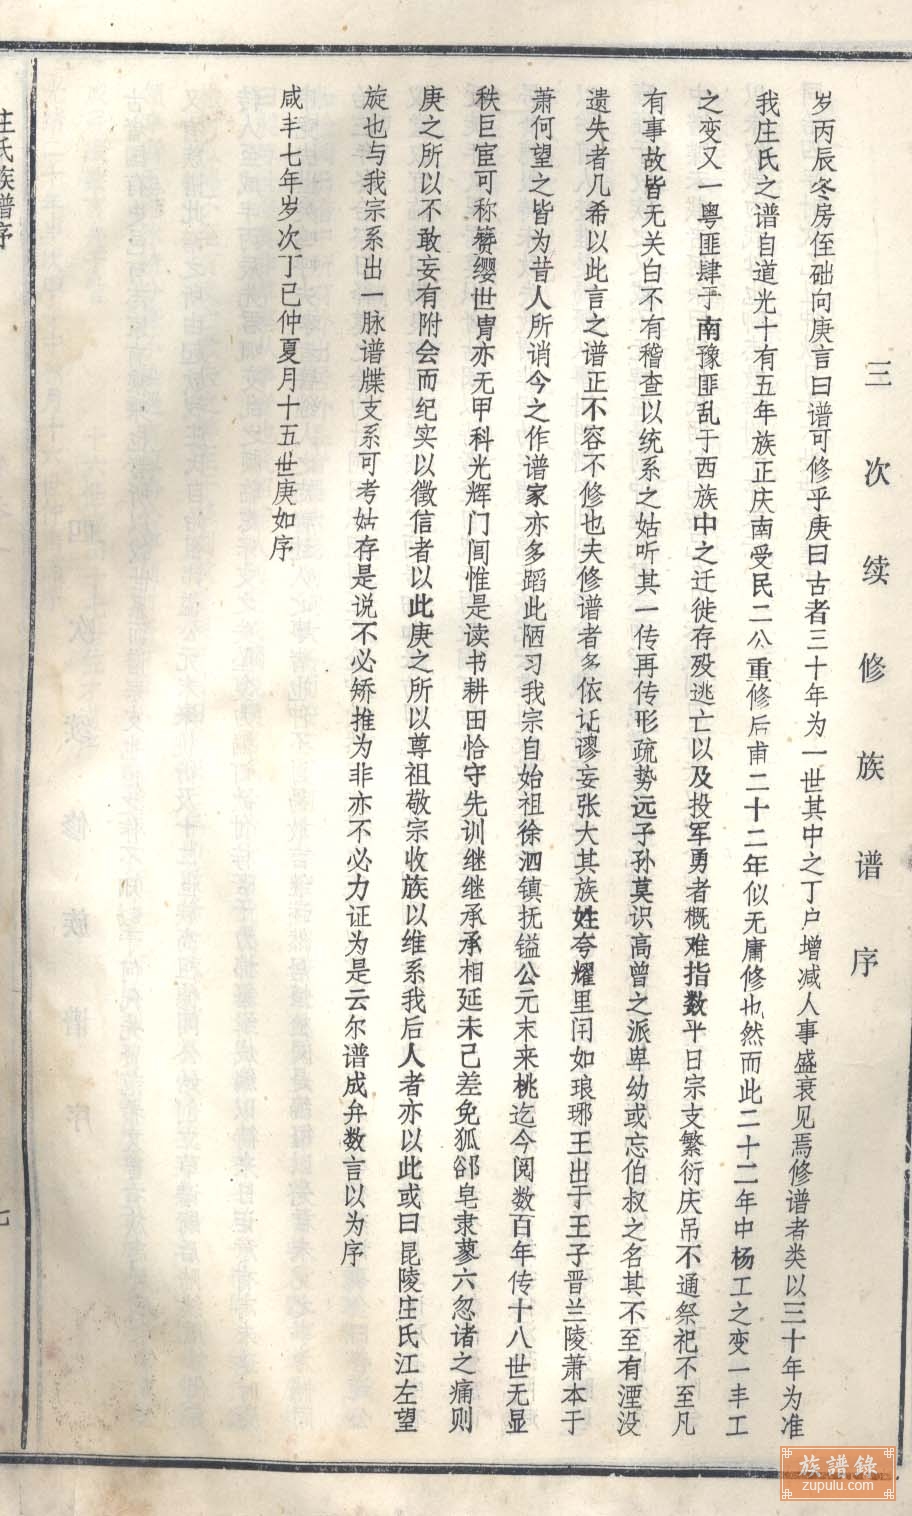 三次续修族谱序
岁丙辰冬房侄础向庚言曰谱可修乎庚曰古者三十年为一世其中之丁户增减人事盛衰见焉修谱者类以三十年为准
我庄氏之谱自道光十有五年族正庆南受民二公重修后甫二十二年似无庸修也然而此二十二年中杨工之变一丰工
之变又一粤匪肆于南豫匪乱于西族中之迁徙存殁逃亡以及投军勇者概难指数平日宗支繁衍庆吊不通祭祀不至凡
有事故皆无关白不有稽查以统系之姑听其一传再传形疏势远子孙莫识高曾之派卑幼或忘伯叔之名其不至有湮没
遗失者几希以此言之谱正不容不修也夫修谱者多依讬谬妄张大其族姓夸耀里闬如琅琊王出于王子晋兰陵萧本于
萧何望之皆为昔人所诮今之作谱家亦多蹈此陋习我宗自始祖徐泗镇抚镒公元末来桃迄今阅数百年传十八世无显
秩巨宦可称簪缨世胄亦无甲科光辉门闾惟是读书耕田恰守先训继继承承相延未己差免狐郤皂隶蓼六忽诸之痛则
庚之所以不敢妄有附会而纪实以徵信者以此庚之所以尊祖敬宗收族以维系我后人者亦以此或曰昆陵庄氏江左望
旋也与我宗系出一脉谱牒支系可考姑存是说不必矫推为非亦不必力证为是云尔谱成弁数言以为序
咸丰七年岁次丁巳仲夏月十五世庚如序
庄氏族谱序
七
族譜錄
zupulu.com